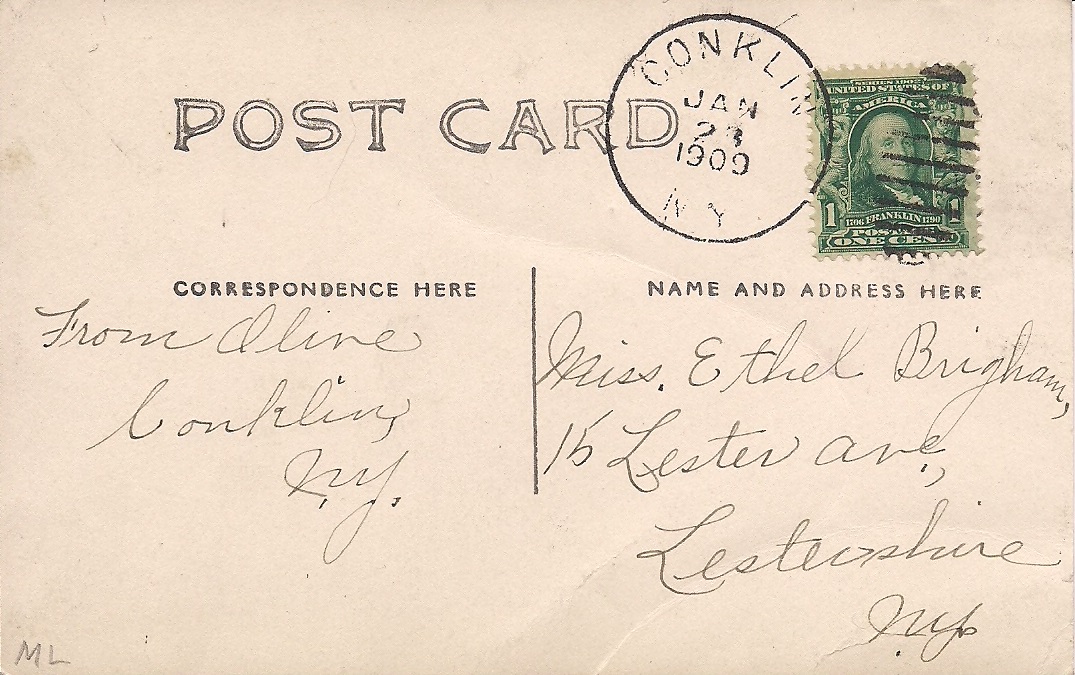 POST CARD
CONKLIN
JAN
23
1909
N Y
SERIES 1902
UNITED STATES OF
AMERICA
1 1
1706 FRANKLIN 1790
POSTAGE
ONE CENT
CORRESPONDENCE HERE
From Olive
Conklin,
N.Y.
NAME AND ADDRESS HERE
Miss. Ethel Brigham,
15 Lester Ave,
Lestershire
N.Y.
ML